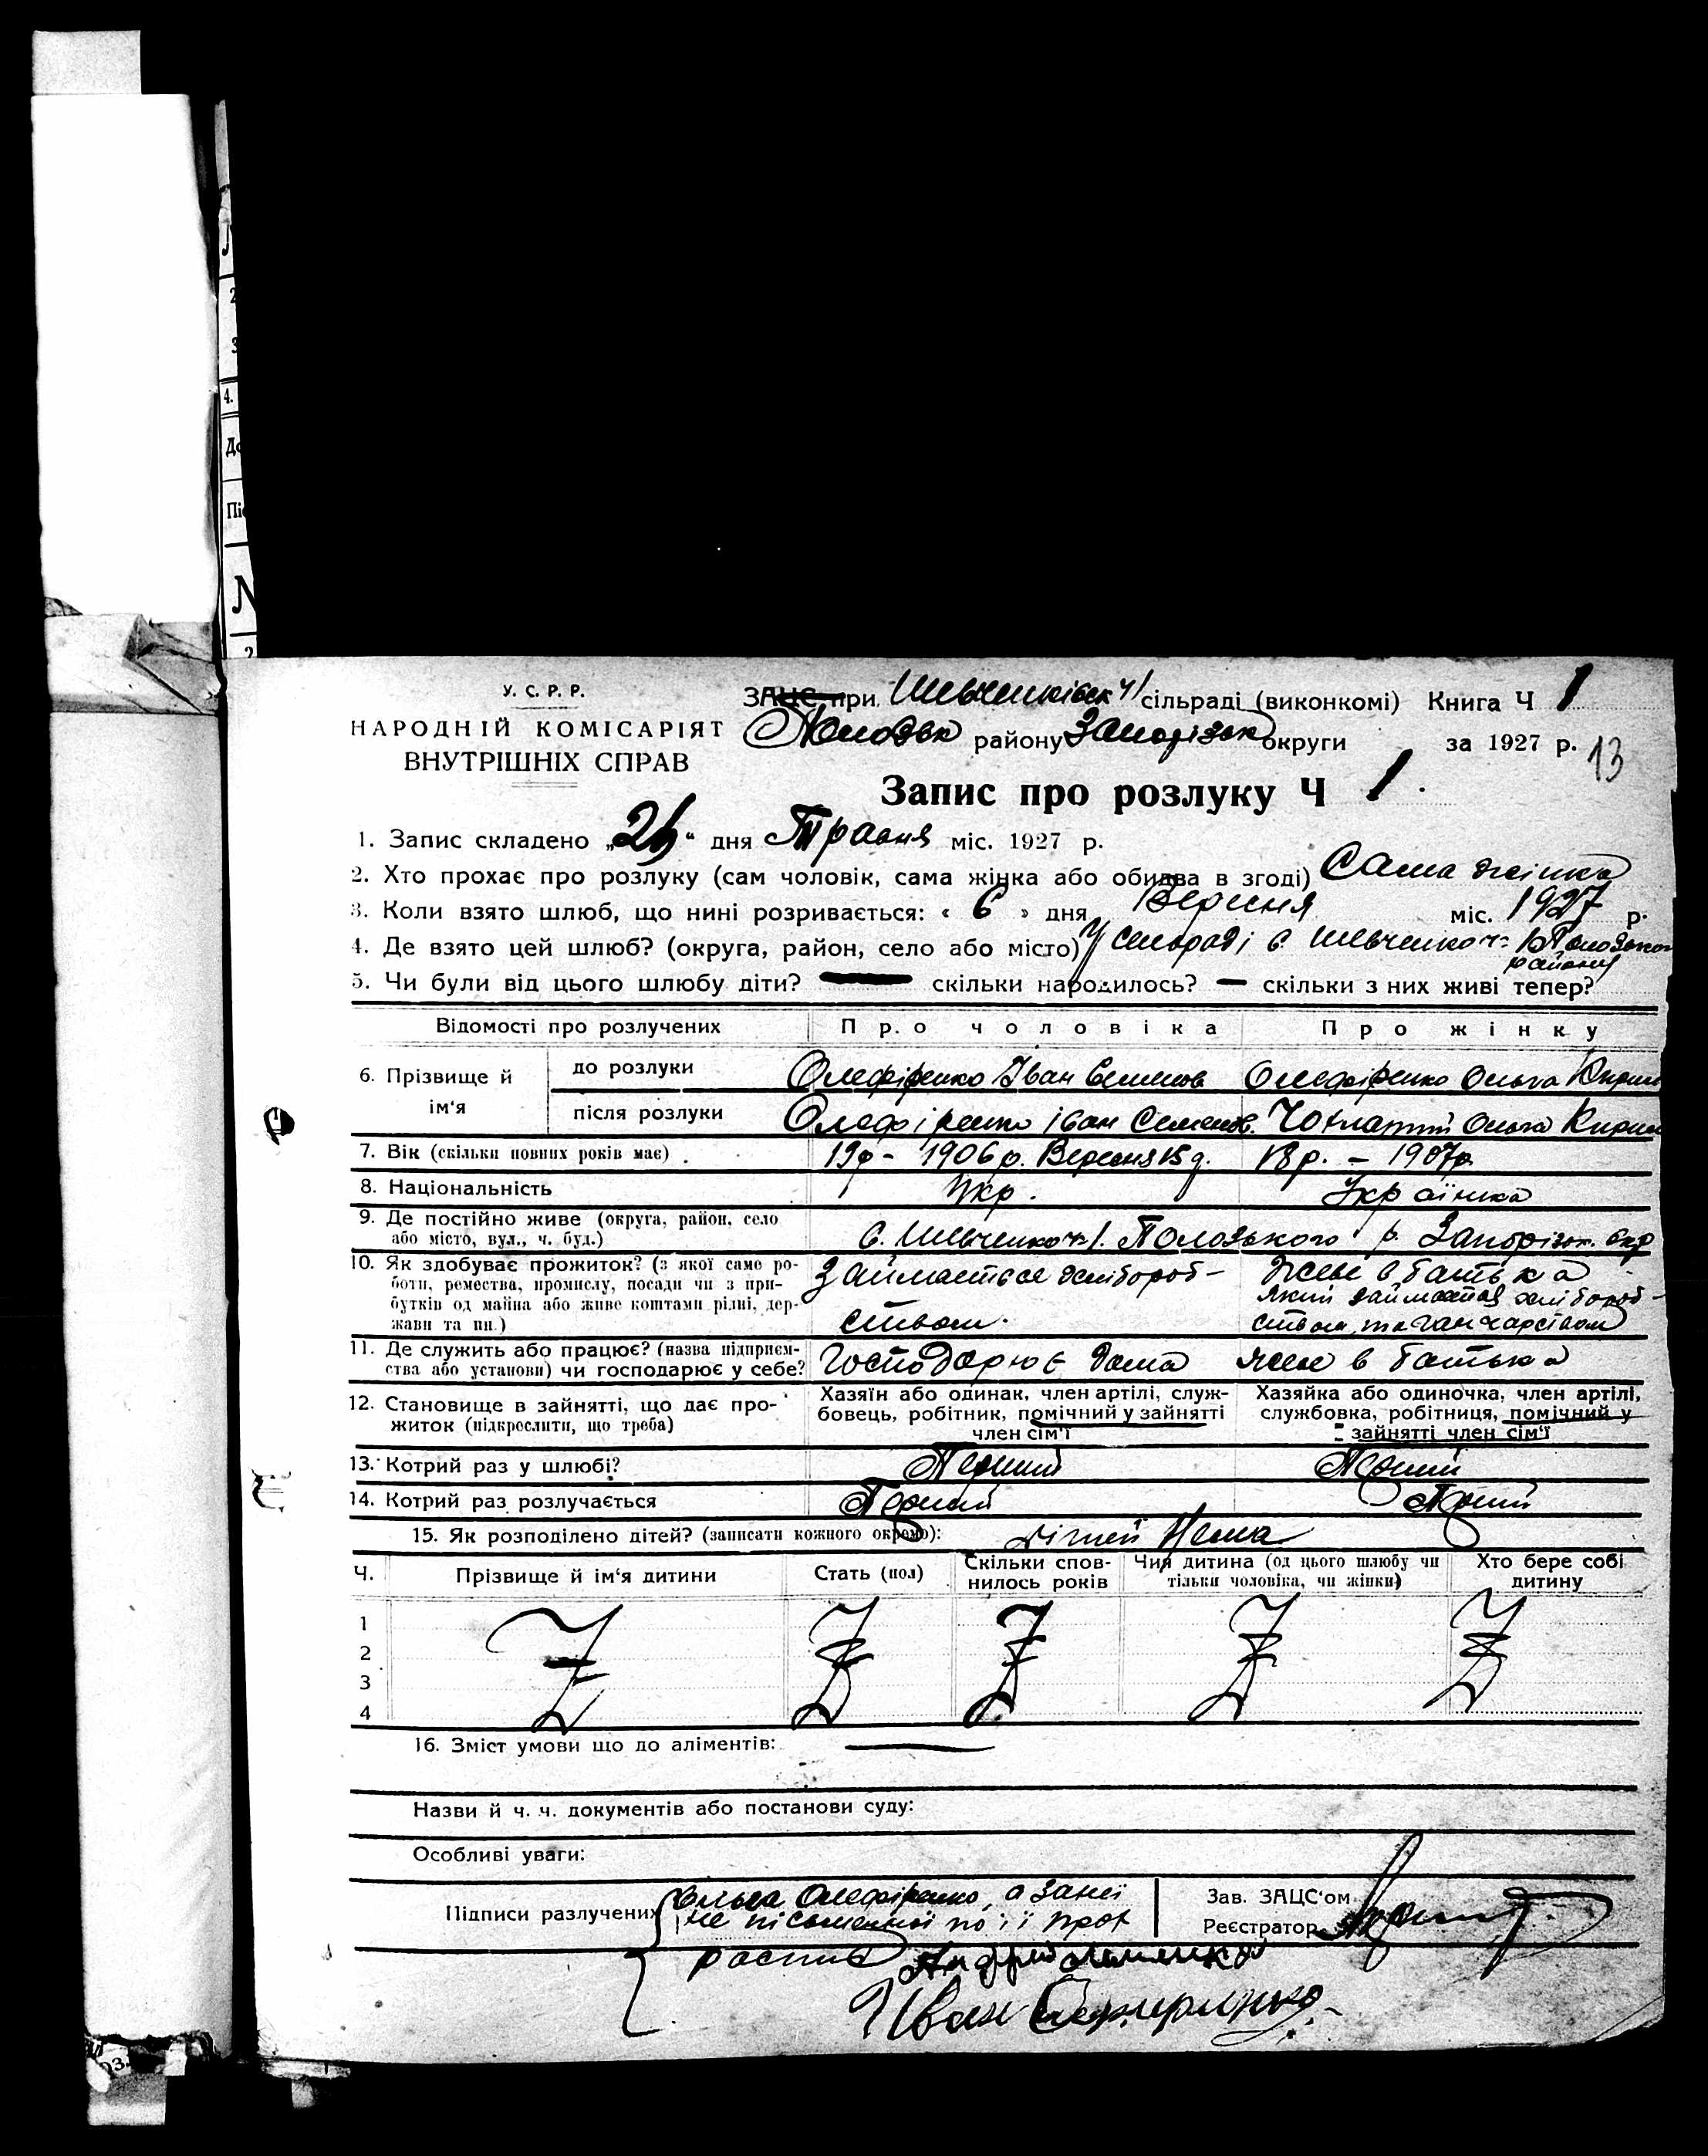 У. С. Р. Р.
НАРОДНІЙ КОМІСАРІЯТ
ВНУТРІШНІХ СПРАВ
ЗАЦС при Шевченківськ сільраді (виконкомі) Книга Ч 1
Полозьк району Запорізьк округи за 1927 р. 13
Запис про розлуку Ч 1.
1. Запис складено „ “ дня Травня міс. 1927 р.
2. Хто прохає про розлуку (сам чоловік, сама жінка або обидва в згоді) Сама жінка
3. Коли взято шлюб, що нині розривається: « 6 » дня Вересня міс. 1927 р.
4. Де взято цей шлюб? (округа, район, село або місто) У сельраді с. Шевченково Полозького
району
5. Чи були від цього шлюбу діти? — скільки народилось? — скільки з них живі тепер?
Відомості про розлучених Про чоловіка Про жінку
6. Прізвище й ім‘я до розлуки Олефіренко Іван Семенов Олефіренко Ольга Кирил
після розлуки Олефіренко Іван Семенов. Ольга Кирил
7. Вік (скільки повних років має) . 19р - 1906 р. Вересня 15 д. 18 р. – 1907р
8. Національність Укр. Українка
9. Де постійно живе (округа, район, село
або місто, вул., ч. буд.) с. Шевченково Полозького р. Запорізьк. окр
10. Як здобуває прожиток? (з якої саме ро-
боти, ремества, промислу, посади чи з при-
бутків од майна або живе коштами рідні, дер-
жави та пн.)
Займається хлібороб-
ством.
Живе в батька
який займается хлібороб-
ством, та ганчарством
11. Де служить або працює? (назва підприєм-
ства або установи) чи господарює у себе? Господорює дома живе в батька
12. Становище в зайнятті, що дає про-
житок (підкреслити, що треба)
Хазяїн або одинак, член артілі, служ-
бовець, робітник, помічний у зайнятті
член сім‘ї
Хазяйка або одиночка, член артілі,
службовка, робітниця, помічний у
зайнятті член сім‘ї
13. Котрий раз у шлюбі? Перший Перший
14. Котрий раз розлучається Перший Перший
15. Як розподілено дітей? (записати кожного окремо): дітей Нема
Ч. Прізвище й ім‘я дитини Стать (пол) Скільки спов-
нилось років Чия дитина (од цього шлюбу чи
тільки чоловіка, чи жінки) Хто бере собі
дитину
1
2
3
4
16. Зміст умови що до аліментів: —
Назви й ч. ч. документів або постанови суду:
Особливі уваги:
Підписи разлучених Ольга Олефіренко, а за неї
не пісьменної по її прох
роспис Андрій
Иван
Зав. ЗАЦС‘ом
Реєстратор